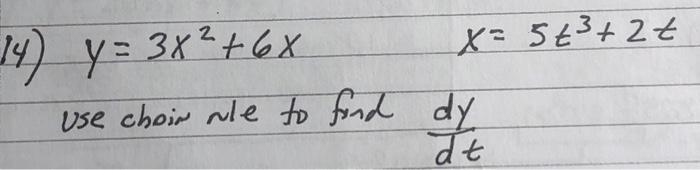 14) y = 3x² + 6x x = 5t³ + 2t
Use chain rule to find dy/dt